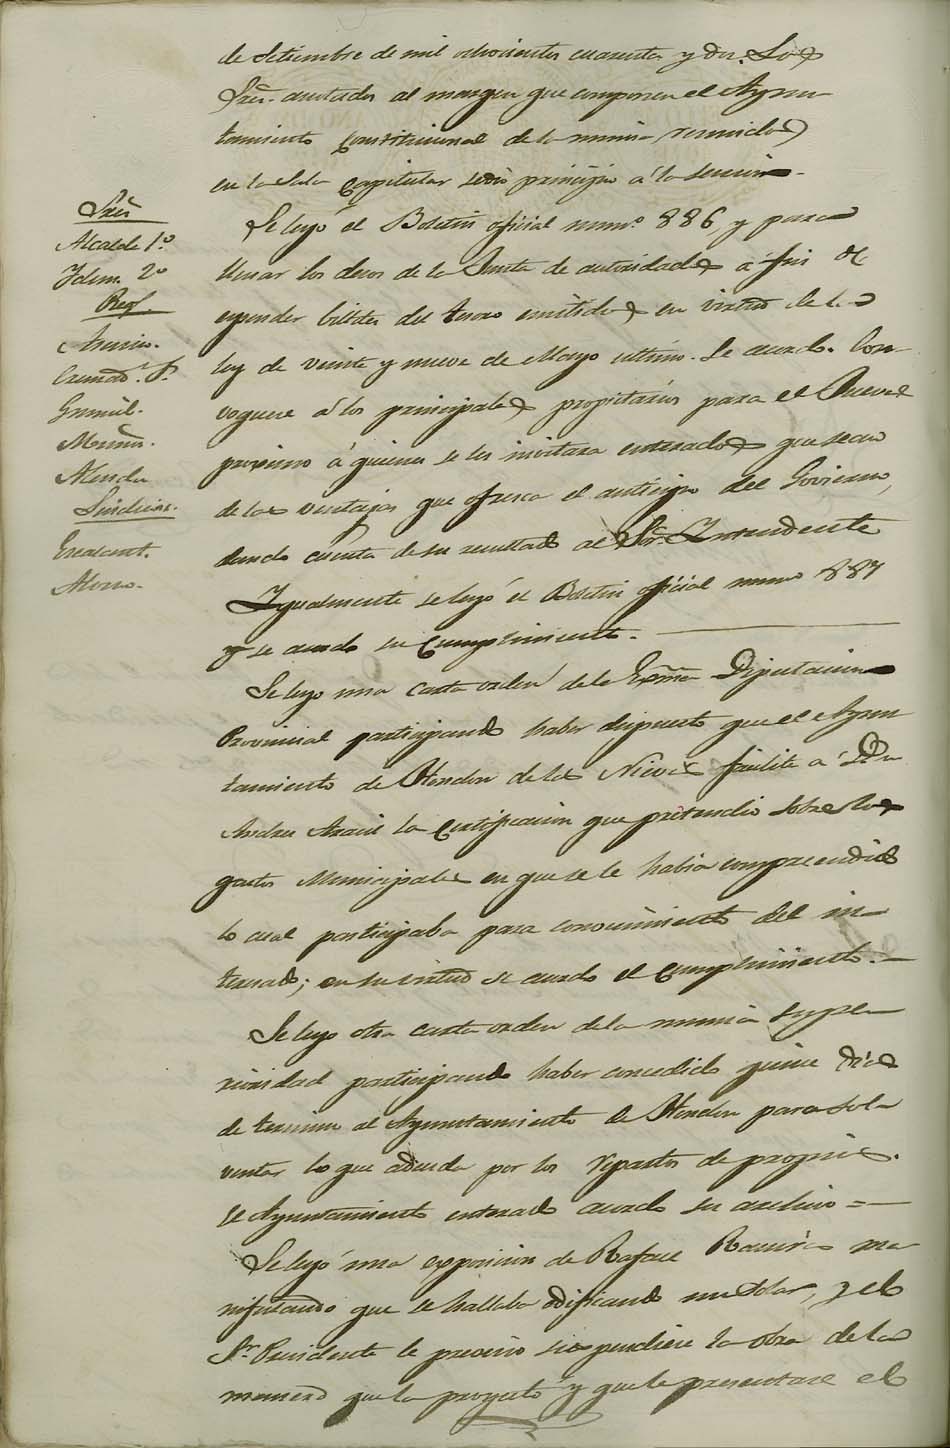 de Setiembre de mil ochocientos cuarenta y dos. Los
Sres. anotados al margen que componen el Ayun
tamiento Constitucional de la misma, reunidos
en la Sala Capitular se dio principio á la sesion.
Sres
Alcalde 1.º
Idem. 2º
Reg.
Asensio.
Cremad.
Muñoz.
Sindicos.
Alonso.
Se leyó el Boletin oficial num.º 886, y para
llenar los deseos de la Junta de autoridades á fin de
espender billetes del tesoro emitidos en virtud de la
ley de veinte y nueve de Mayo ultimo. Se acordó. Con
voquese á los principales propietarios para el Jueves
procsimo á quienes se les invitara enterados que sean
de las ventajas que ofresca el anticipo del Govierno,
dando cuenta de su resultado al Sr. Intendente
Igualmente se leyó el Boletin oficial num.º 887
y se acordo su cumplimiento.
Se leyo una carta orden de la Exma Diputacion
Provincial participando haber dispuesto que el Ayun
tamiento de Hondon de las Nieves facilite á Dn
Andres la certificacion que pretendio sobre los
gastos Municipales en que se le habia comprendido
lo cual participaba para conocimiento del in
teresado; en su virtud se acordo el cumplimiento.
Se leyo otra carta orden de la misma supe
rioridad participando haber concedido quince dias
de termino al Ayuntamiento de Hondon para sol
ventar lo que adeuda por los repartos de propios.
El Ayuntamiento enterado acordo su archivo =
Se leyó una exposicion de Rafael Ramirez ma
nifestando que se hallaba edificando un Solar, y el
Sr. Presidente le previno suspendiese la obra de la
manera que la proyectó y que le presentase el